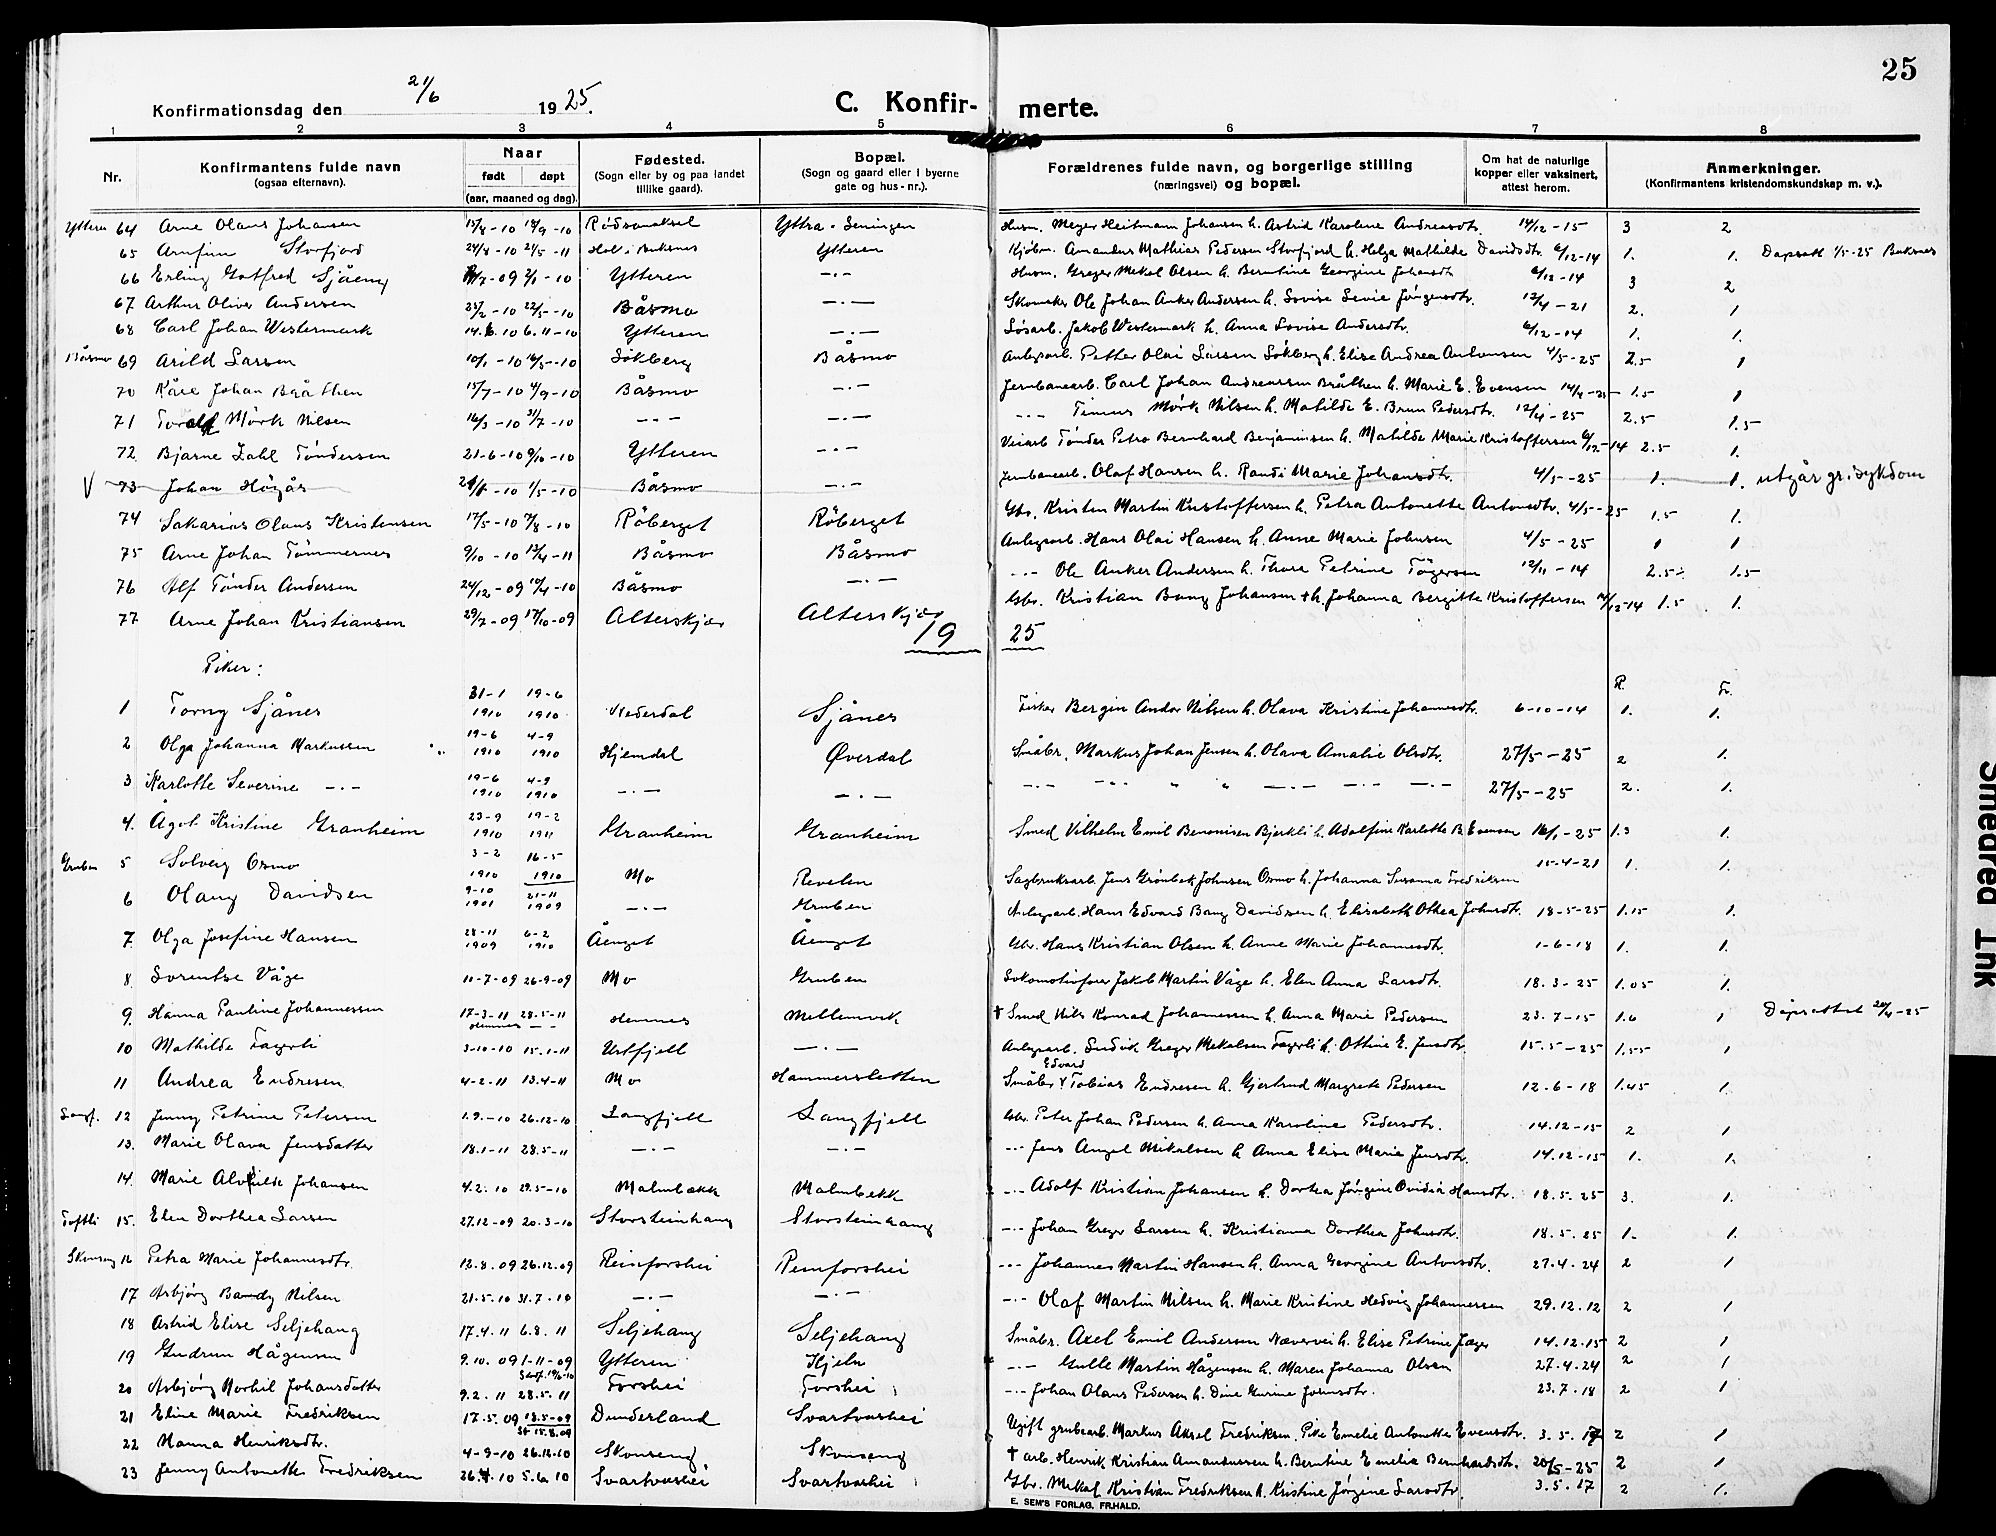 25
Konfirmationsdag den 21/6 1925.
C. Konfir- merte.
1 2 3 4 5 6 7 8
Nr.
Konfirmantens fulde navn
(ogsaa efternavn).
Naar
født døpt
(aar, maaned og dag).
Fødested.
(Sogn eller by og paa landet
tillike gaard).
Bopæl.
(Sogn og gaard eller i byerne
gate og hus-nr.).
Forældrenes fulde navn, og borgerlige stilling
(næringsvei) og bopæl.
Om hat de naturlige
kopper eller vaksinert,
attest herom.
Anmerkninger.
(Konfirmantens kristendomskundskap m. v.).
Ytteren 64 Arne Olaus Johansen 14/9-10 Ytteren Meyer Heitmann Johansen h. Astrid Karoline Andreasdtr. 14/12-15 3 2
65 Arnfinn Storfjord 24/8-10 21/5-11 Ytteren Kjøbm. Amandus Mathias Pedersen Storfjord h. Helga Mathilde Davidsdtr. 6/12-14 1. 1. Dåpsatt 1/5-25 Buksnes
66 Erling Gotfred 2/1-10 Ytteren -.- Husm. Greger Mekal Olsen h. Berntine Georgine Johansdtr 6/12-14 3 2
67 Arthur Oliver Andersen 25/2-10 22/5-10 Båsmo -.- Skomaker Ole Johan Anker Andersen h. Lovise 12/4-21 2. 1
68 Carl Johan Westermark 14.6.10 6.11-10 Ytteren -.- Løsarb. Jakob Westermark h. Anna Lovise Andersdtr. 6/12-14 1. 1.
Båsmo 69 Arild Larsen 10/1-10 16/5-10 Søkberg Båsmo Anlegsarb. Petter Olai Larsen Søkberg h. Elise Andrea Antonsen 4/5-25 2.5 1
70 Kåre Johan Bråthen 15/7-10 4/9-10 Båsmo -.- Jernbanearb. Carl Johan Andreassen Bråthen h. Marie E. Evensen 14/4-25 1.5 1
71 Toralf Mörk Nilsen 16/3-10 31/7-10 -.- -.- -.- Mörk Nilsen h. Matilde E. Brun Pedersdtr. 12/4-25 2.5 1.5
72 Bjarne Zahl Töndersen 21-6-10 9/10-10 Ytteren -.- Veiarb Tönder Petro Bernhard Benjaminsen h. Matilde Marie Kristoffersen 6/12-14 2.5 1.
V 73 Johan Högås 1/5-10 Båsmo -.- Jernbanearb. Olaf Hansen h. Randi Marie Johansdtr. 4/5-25 1. 1. utgår gr. sykdom
74 Sakarias Olaus Kristensen 17/5-10 7/8-10 Röberget Röberget Gbr. Kristen Martin Kristoffersen h. Petra Antonette Antonsdtr. 4/5-25 1.5 1.
75 Arne Johan Tömmernes 9/10-10 13/4-11 Båsmo Båsmo Anlegsarb. Hans Olai Hansen h. Anne Marie Johnsen 4/5-25 1 1
76 Alf Tönder Andersen 24/12-09 10/4-10 Båsmo -.- -.- Ole Anker Andersen h. Thora Petrine Tögersen 12/11-14 2.5 1.5
77 Arne Johan Kristiansen 29/7-09 17/10-09 Alterskjær Alterskjær Gbr. Kristian Bang Johansen + h. Johanna Bergitte Kristoffersen 1.5 1.
19 25
Piker:
K. Fr.
1 Torny Sjånes 31-1 1910 19-6 1910 Nederdal Sjånes Fisker Bergin Andor Nilsen h. Olava Kristine Johannesdtr. 6-10-14 1. 1.
2 Olga Johanna Markussen 19-6 1910 4-9 1910 Hjemdal Øverdal Småbr. Markus Johan Jensen h. Olava Amalie Olsdtr. 27/5-25 2 1.
3 Karlotte Severine -.- 19-6 1910 4-9 1910 -.- -.- -.- 27/5-25 2. 1.
4. Ågot Kristine Granheim 23-9 1910 19-2 1911 Granheim Granheim Smed Vilhelm Emil Benonisen Bjerkli h. Adolfine Karlotte B. Evensen 16/1-25 1.3 1.
Gruben 5 Solveig Osmo 3-2 1910 16-5 1910 Mo Revelen Sagbruksarb. Jens Grönbek Johnsen Osmo h. Johanna Susanna Fredriksen 15-4-21 1. 1.
6 Olaug Davidsen 9-10 1901 21-11 1909 -.- Gruben Anlegsarb. Hans Edvard Bang Davidsen h. Elisabeth Othea Johnsdtr. 18-5-25 1.15 1.
7. Olga Josefine Hansen 28-11 1909 6-2 1910 Åenget Åenget Gbr. Hans Kristian Olsen h. Anne Marie Johannesdtr. 1-6-18 1. 1.
8 Lorentse Våge 11-7-09 26-9-09 Mo Gruben Lokomotivfører Jakob Martin Våge h. Elen Anna Larsdtr. 18.3-25 1.05 1.
9. Hanna Pauline Johannessen 17-3-11 28.5-11 Hemnes -- Hemnes Mellemvik + Smed Nils Konrad Johannessen h. Anna Marie Pedersen 23.7-15 1.6 1 Dåpsattest 20/4-25
10 Mathilde Fagerli 3-10-10 15.1-11 Urtfjell -.- Anlegsarb. Ludvik Greger Mekalsen Fagerli h. Ottine E. Jensdtr. 15.5-25 1.55 1
11 Andrea Endresen 4-2-11 13.4-11 Mo Hammersletten Småbr. Edvard Tobias Endresen h. Gjertrud Margrete Pedersen 12.6-18 1.45 1.
Langf. 12 Jenny Petrine Petersen 1.9.-10 26.12-10 Langfjell Langfjell Gbr. Peter Johan Pedersen h. Anna Karoline Pedersdtr. 14.12-15 2 1
13. Marie Olava Jensdatter 18.1-11 28.5-11 -.- -.- -.- Jens Angel Mikalsen h. Anna Elise Marie Jensdtr. 14.12-15 1. 1.
14. Marie Alvhilde Johansen 4.2.10 29.5-10 Malmbækk Malmbekk -.- Adolf Kristian Johansen h. Dortea Jörgine Ovidia Hansdtr. 18.5.25 3. 1.
Toftli 15. Elen Dorthea Larsen 27.12-09 20.3-10 Storsteinhaug Storsteinhaug -.- Johan Greger Larsen h. Kristianna Dorthea Johnsdtr. 18.5.25 1. 1.
Skonseng 16 Petra Marie Johannesdtr. 12.8.09 26.12.09 Reinforshei Reinforshei -.- Johannes Martin Hansen h. Anna Georgine Antonsdtr. 27.4.24 2 1
17 Asbjörg Bandy Nilsen 21.5.10 31.7.10 -.- -.- -.- Olaf Martin Nilsen h. Marie Kristine Hedvig Johannessen 29.12.12 2 1
18 Astrid Elise Seljehaug 17.4.11 6.8.11 Seljehaug Seljehaug Småbr. Axel Emil Andersen Nævervei h. Elise Petrine Jæger 14.12.15 2 1
19 Gudrun Hågensen 9.10.09 1-11-09 Ytteren Hjeln -.- Gulle Martin Hågensen h. Maren Johanna Olsen 27.4.24 2 1
20 Asbjörg Norhil Johansdatter 9.2.11 28.5.11 Forshei Forshei -.- Johan Olaus Pedersen h. Dine Gurine Johnsdtr. 23.7.18 2 1
21 Eline Marie Fredriksen 17.5.09 18.5-09 St 15.8.09 Dunderland Svartvashei Ugift grubearb. Markus Aksel Fredriksen. Pike Emelie Antonette Evensdtr. 3.5.17 2 1
22 Hanna Henriksdtr. 4-9-10 26.12.10 Skonseng Skonseng + arb. Henrik Kristian Amandussen h. Berntine Emelie Bernhardsdtr. 20/5-25 2 1
23 Jenny Antonette Fredriksen 26.4.10 5.6.10 Svartvashei Svartvashei Gbr. Mikal Kristian Fredriksen h. Kristine Jörgine Larsdtr. 3.5.17 2 1.
E. SEM'S FORLAG, FR.HALD.
Smeared Ink